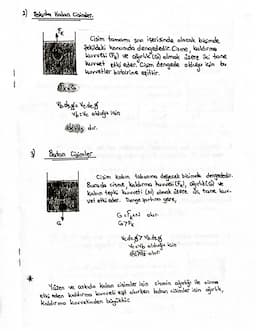 2) Askıda Kalan Cisimler.
Cisim tamamı sıvı içerisinde olacak biçimde
şekildeki konumda dengededir. Cisme, kaldırma
kuvveti (Fk) ve ağırlık (G) olmak üzere iki tane
kuvvet etki eder. Cisim dengede olduğu için bu
kuvvetler birbirine eşittir.
Fk = G
Vb.ds.g = Vc.dc.g
Vb = Vc olduğu için
ds = dc dir.
3) Batan Cisimler
Cisim kabın tabanına değecek biçimde dengededir.
Burada cisme, kaldırma kuvveti (Fk), ağırlık (G) ve
kabın tepki kuvveti (N) olmak üzere üç tane kuv-
vet etki eder. Denge şartına göre,
G = Fk + N olur.
G > Fk
Vc.dc.g > Vb.ds.g
Vc = Vb olduğu için
dc > ds dir.
G
* Yüzen ve askıda kalan cisimler için cismin ağırlığı ile cisme
etki eden kaldırma kuvveti eşit olurken batan cisimler için ağırlık,
kaldırma kuvvetinden büyüktür.